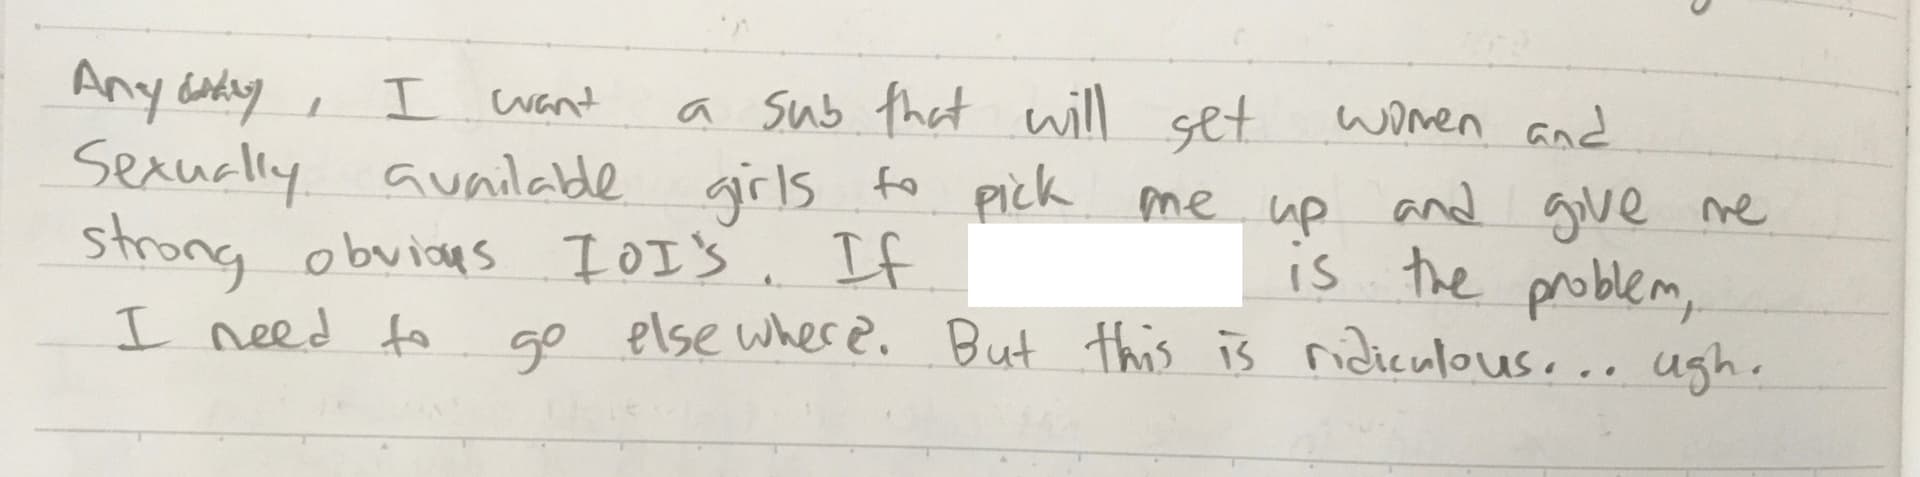 Anyway, I want a sub that will get women and
Sexually available girls to pick me up and give me
strong obvious IOI's. If is the problem,
I need to go elsewhere. But this is ridiculous... ugh.